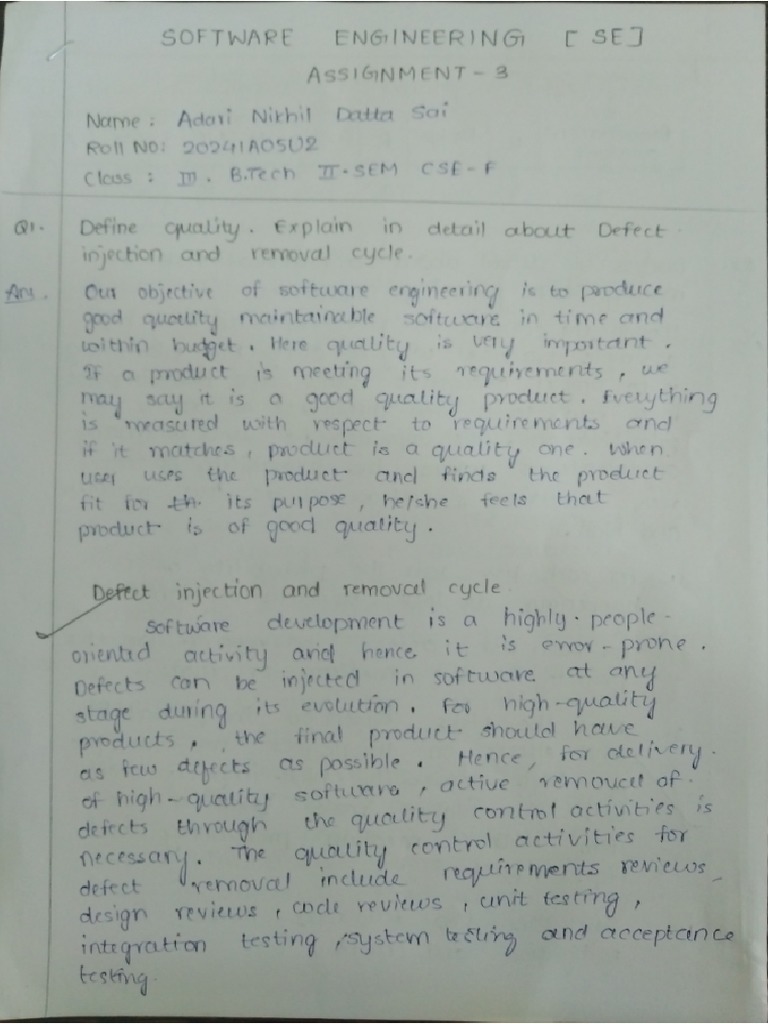 SOFTWARE ENGINEERING [SE]
ASSIGNMENT - 3
Name : Adari Nikhil Datta Sai
Roll No: 20241A05U2
Class : III . B.Tech II - SEM CSE - F
Q1. Define quality. Explain in detail about Defect
injection and removal cycle.
Ans. Our objective of software engineering is to produce
good quality maintainable software in time and
within budget. Here quality is very important.
If a product is meeting its requirements, we
may say it is a good quality product. Everything
is measured with respect to requirements and
if it matches, product is a quality one. when
user uses the product and finds the product
fit for its purpose, he/she feels that
product is of good quality.
Defect injection and removal cycle
Software development is a highly-people-
oriented activity and hence it is error-prone.
Defects can be injected in software at any
stage during its evolution. For high-quality
products, the final product should have
as few defects as possible. Hence, for delivery
of high-quality software, active removal of
defects through the quality control activities is
necessary. The quality control activities for
defect removal include requirements reviews,
design reviews, code reviews, unit testing,
integration testing, system testing and acceptance
testing.